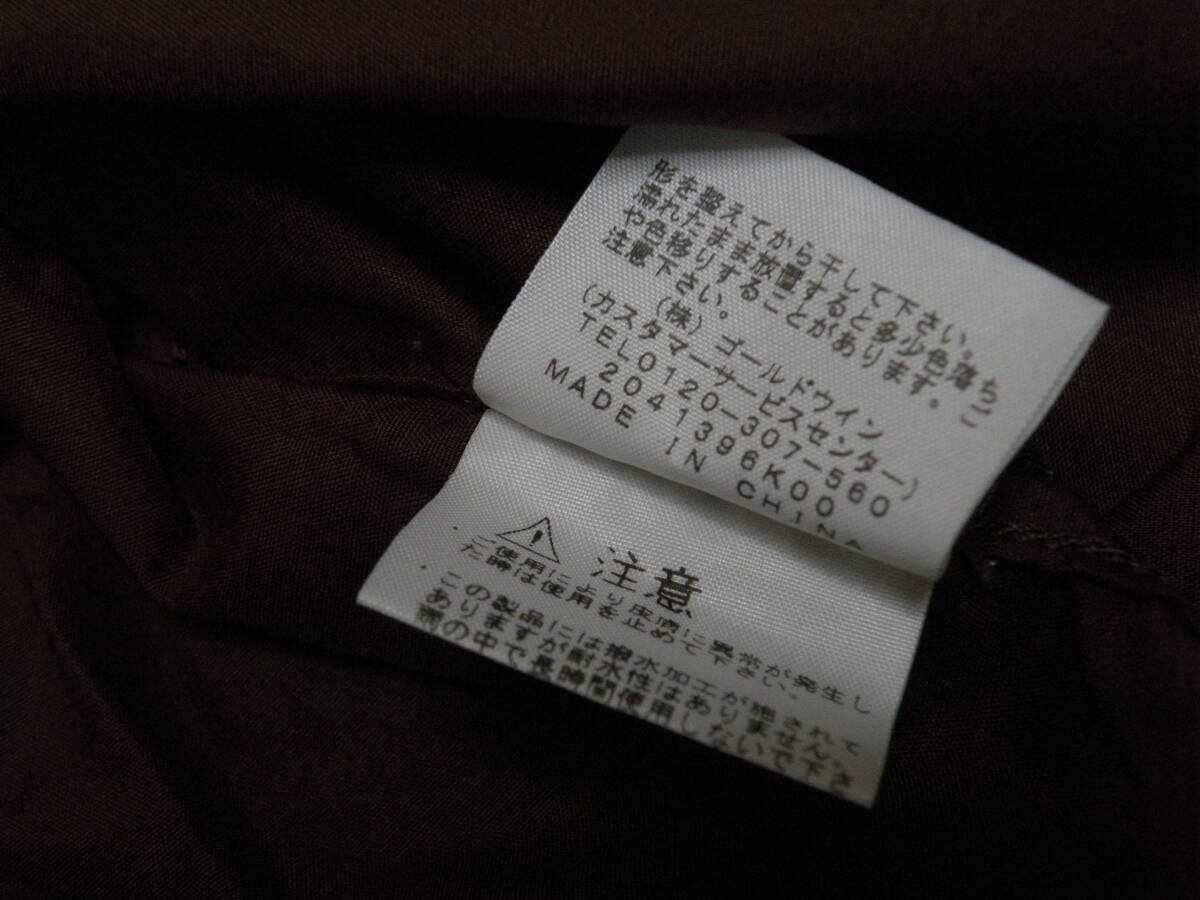 形を整えてから干して下さい。
濡れたまま放置すると多少色落ち
や色移りすることがあります。ご
注意下さい。
(株)ゴールドウイン
(カスタマーサービスセンター)
TEL0120-307-560
2041396K00
MADE IN CHINA
注意
ご使用により皮膚に異常が発生し
た時は使用を止めて下さい。
この製品には撥水加工が施されて
ありますが耐水性はありません。
雨の中で長時間使用しないで下さ